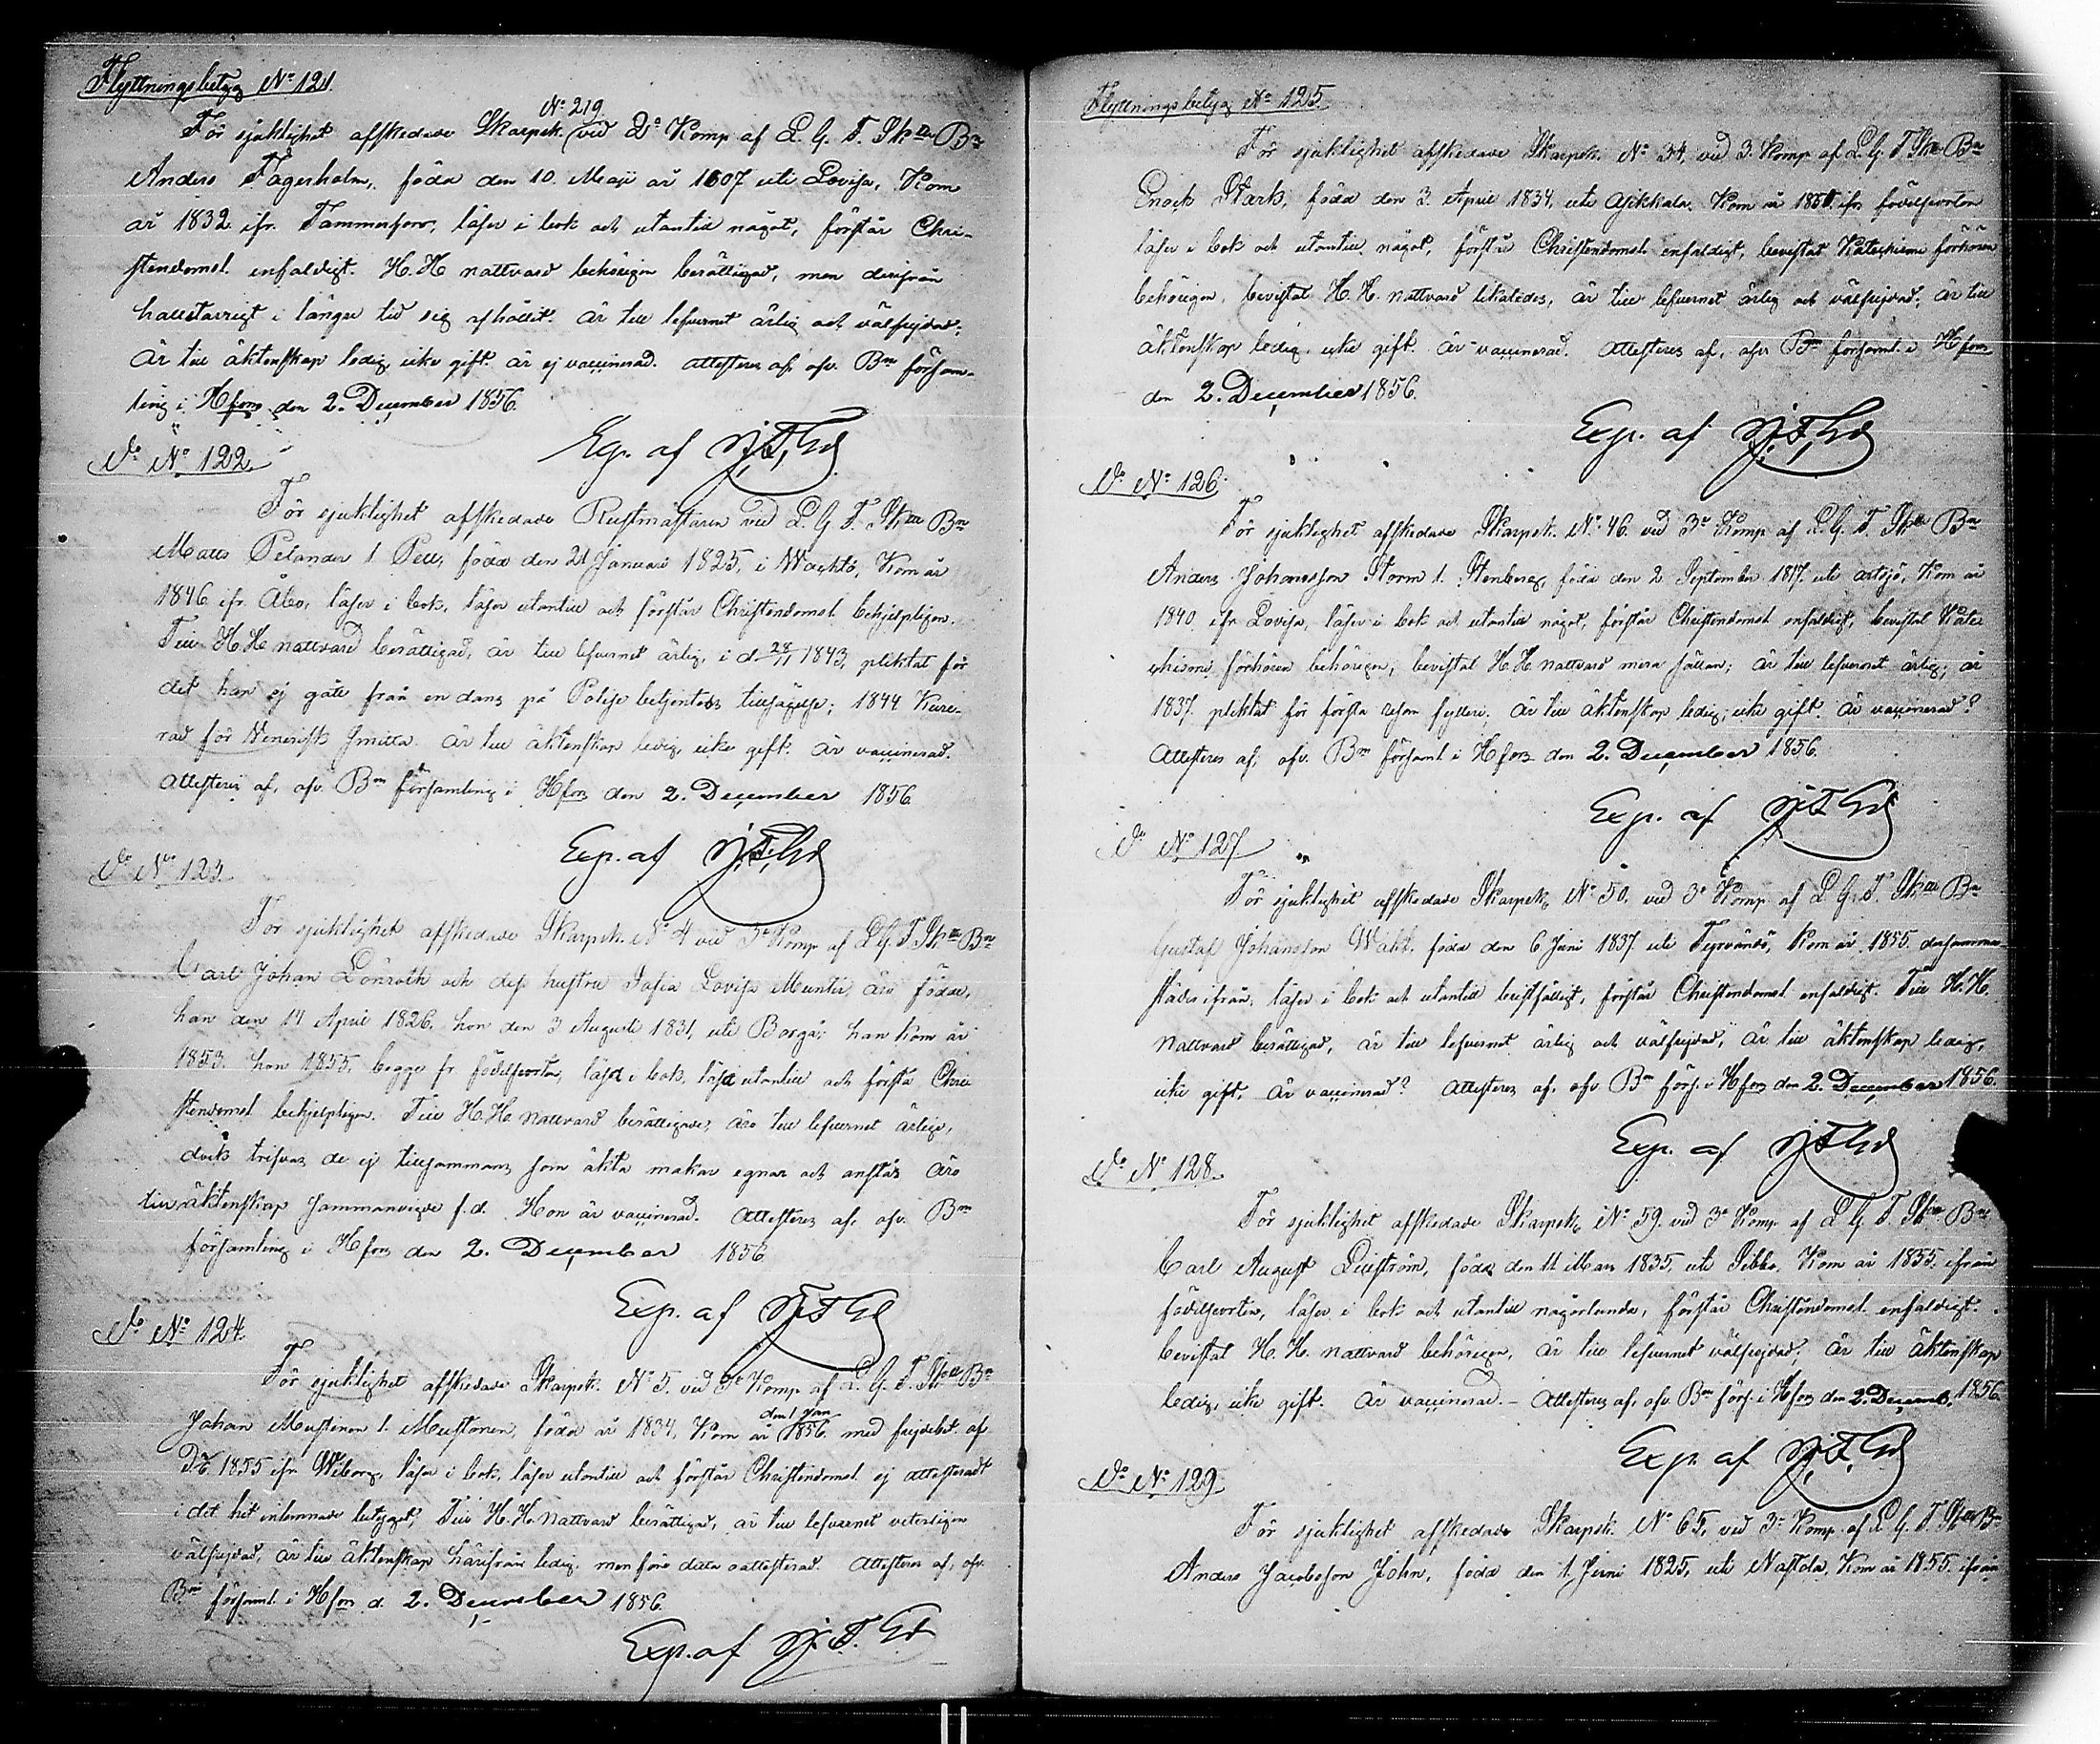 Flyttningsbetyg No 121.
No 219
För sjuklighet afskedade Skarpsk. vid 2a Komp af L. G. F. Sk.tte Bn
Anders Fagerholm, född den 10. Maji år 1807 uti Lovisa, Kom
år 1832 ifr. Tammerfors, läser i bok och utantill något, förstår Chri-
stendomel. enfaldigt. H. H. nattvard behörigen berättigad, men derifrån
hallstarrigt i längre tid sig afhållit. är till lefvernet ärlig och välfrejdad;
Är till äktenskap ledig, icke gift. är ej vaccinerad. attesteras af, ofv. Bns försam-
ling i Hfors den 2. December 1856.
Exp. af
Do No 122.
För sjuklighet afskedade Rustmästaren vid L. G. F. Sk.tte Bn
Matts Pelander l. Pell, född den 21 Januari 1825, i Wachtö, Kom år
1846 ifr Åbo, läser i bok, läser utantill och förstår Christendomel. behjelpligen.
Till H. H. nattvard berättigad, är till lefvernet ärlig, i d. 28/11 1843, pliktat för
det han ej gått från en dans på Polise betjentes tillsägelse; 1844 Kure-
rad för Venerisk Smitta. är till äktenskap ledig, icke gift. är vaccinerad.
attesteras af, ofv. Bns församling i Hfors den 2. December 1856.
Exp. af
Do No 123.
För sjuklighet afskedade Skarpsk. No 4 vid 3e Komp af L. G. F. Sk.tte Bn
Carl Johan Lönroth och dess hustru Sofia Lovisa Munter, äro födde,
han den 14 April 1826, hon den 3 Augusti 1831, uti Borgå; han kom år
1853. hon 1855, begge fr födelseorten, läsa i bok, läsa utantill och förstå Chri-
stendomel behjelpligen. Till H. H. Nattvard berättigade, äro till lefvernet ärlige,
dock trifvas de ej tillsammans som äkta makar egnar och anstår äro
till äktenskap sammanvigde f. d. Hon är vaccinerad. Attesteras af, ofv. Bns
församling i Hfors den 2. December 1856.
Exp. af
Do No 124.
För sjuklighet afskedade Skarpsk. No 5. vid 3e Komp af L. G. F. Sk.tte Bn
den 1 Jan
Johan Mustonen l. Mustonen, född år 1834, Kom år 1856 med frejdebet. af
1855 ifr Wiborg, läser i bok, läser utantill och förstår Christendomel. ej attesteradt
i det hit inlemnade betyget; Till H. H. Nattvard berättigad, är till lefvernet veterligen
välfrejdad, är till äktenskap härifrån ledig, men före detta oattesterad. Attesteras af, ofv.
Bns församl. i Hfors d. 2. December 1856.
Exp. af
Flyttningsbetyg No 125.
För sjuklighet afskedade Skarpsk. No 34. vid 3. Komp af L. G. F. Sk.tte Bn
Enock Stark, född den 3. April 1834, uti Asikkala. Kom år ifr födelseorten
läser i bok och utantill något, förstår Christendomel. enfaldigt, bevistat Katechismi förhören
behörigen, bevistat H. H. nattvard likaledes, är till lefvernet ärlig och välfrejdad. är till
äktenskap ledig. icke gift. är vaccinerad. attesteras af, ofv Bns församl. i Hfors
den 2. December 1856.
Exp. af
Do No 126.
För sjuklighet afskedade Skarpsk. No 46. vid 3e Komp af L. G. F. Sk.tte Bn
Anders Johansson Storm l. Stenberg, född den 2 September 1817. uti artsjö, Kom år
1840. ifr Lovisa, läser i bok och utantill något, förstår Christendomel enfaldigt, bevistat Kate-
chismi förhören behörigen, bevistat H. H. nattvard mera sällan; är till lefvernet ärlig; är
1837. pliktat för första resan fylleri. är till äktenskap ledig, icke gift. är vaccinerad?
Attesteras af, ofv. Bns församl i Hfors den 2. December 1856.
Exp. af
Do No 127
För sjuklighet afskedade Skarpsk. No 50. vid 3e Komp af L. G. F. Sk.tte Bn
Gustaf Johansson Wakt. född den 6 Juni 1837. uti Tyrvändö, Kom år 1855. dersamma-
städes ifrån, läser i bok och utantill bristfälligt, förstår Christendomel enfaldigt. Till H. H.
Nattvard berättigad, är till lefvernet ärlig och välfrejdad, är till äktenskap ledig,
icke gift. är vaccinerad? attesteras af, ofv Bns förs. i Hfors den 2. December 1856.
Exp. af
Do No 128.
För sjuklighet afskedade Skarpsk. No 59. vid 3e Komp af L. G. F. Sk.tte Bn
Carl August född den 11 Mars 1835. uti Sibbo, Kom år 1855. ifrån
födelseorten, läser i bok och utantill någorlunda, förstår Christendomel. enfaldigt.
bevistat H. H. nattvard behörigen, är till lefvernet välfrejdad; är till äktenskap
ledig, icke gift. är vaccinerad. - Attesteras af, ofv Bns förs. i Hfors den 2. Decemb. 1856.
Exp. af
Do No 129.
För sjuklighet afskedade Skarpsk. No 65, vid 3e Komp. af L. G. F. Sk.tte Bn
Anders Jacobsson John, född den 1. Juni 1825, uti Nastola, Kom år 1855. ifrån